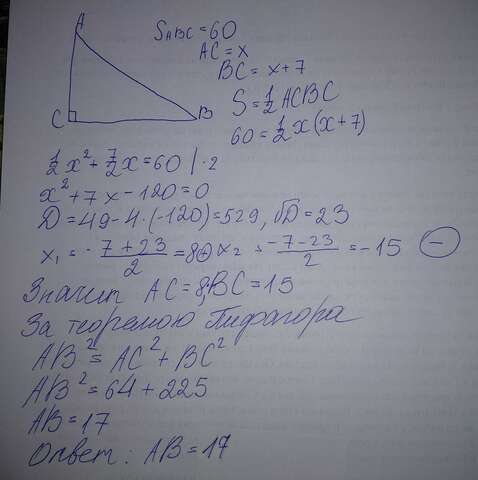 A
C
B
S ABC = 60
AC = x
BC = x + 7
S = 1/2 ACBC
60 = 1/2 x(x + 7)
1/2 x² + 7/2 x = 60 | · 2
x² + 7x - 120 = 0
D = 49 - 4 · (-120) = 529, √D = 23
x₁ = - 7 + 23 / 2 = 8 ⊕ x₂ = -7 - 23 / 2 = -15 ⊖
Значит AC = 8, BC = 15
За теоремою Пифагора
AB² = AC² + BC²
AB² = 64 + 225
AB = 17
Ответ: AB = 17